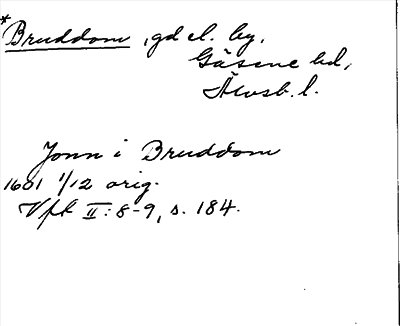 *Bruddom, gd el. by,
Gäsene hd,
Älvsb. l.
Jonn i Bruddom
1601 1/12 orig.
Vfk II: 8-9, s. 184.